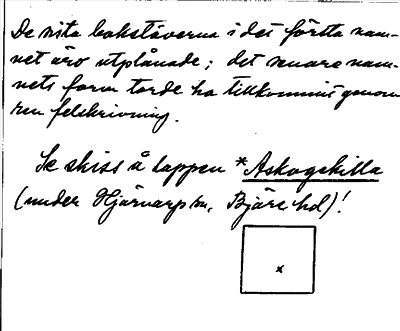 De sista bokstäverna i det första nam-
net äro utplånade; det senare nam-
nets form torde ha tillkommit genom
ren felskrivning.
Se skiss å lappen *Askogskilla
(under Hjärnarp sn, Bjäre hd)!
x